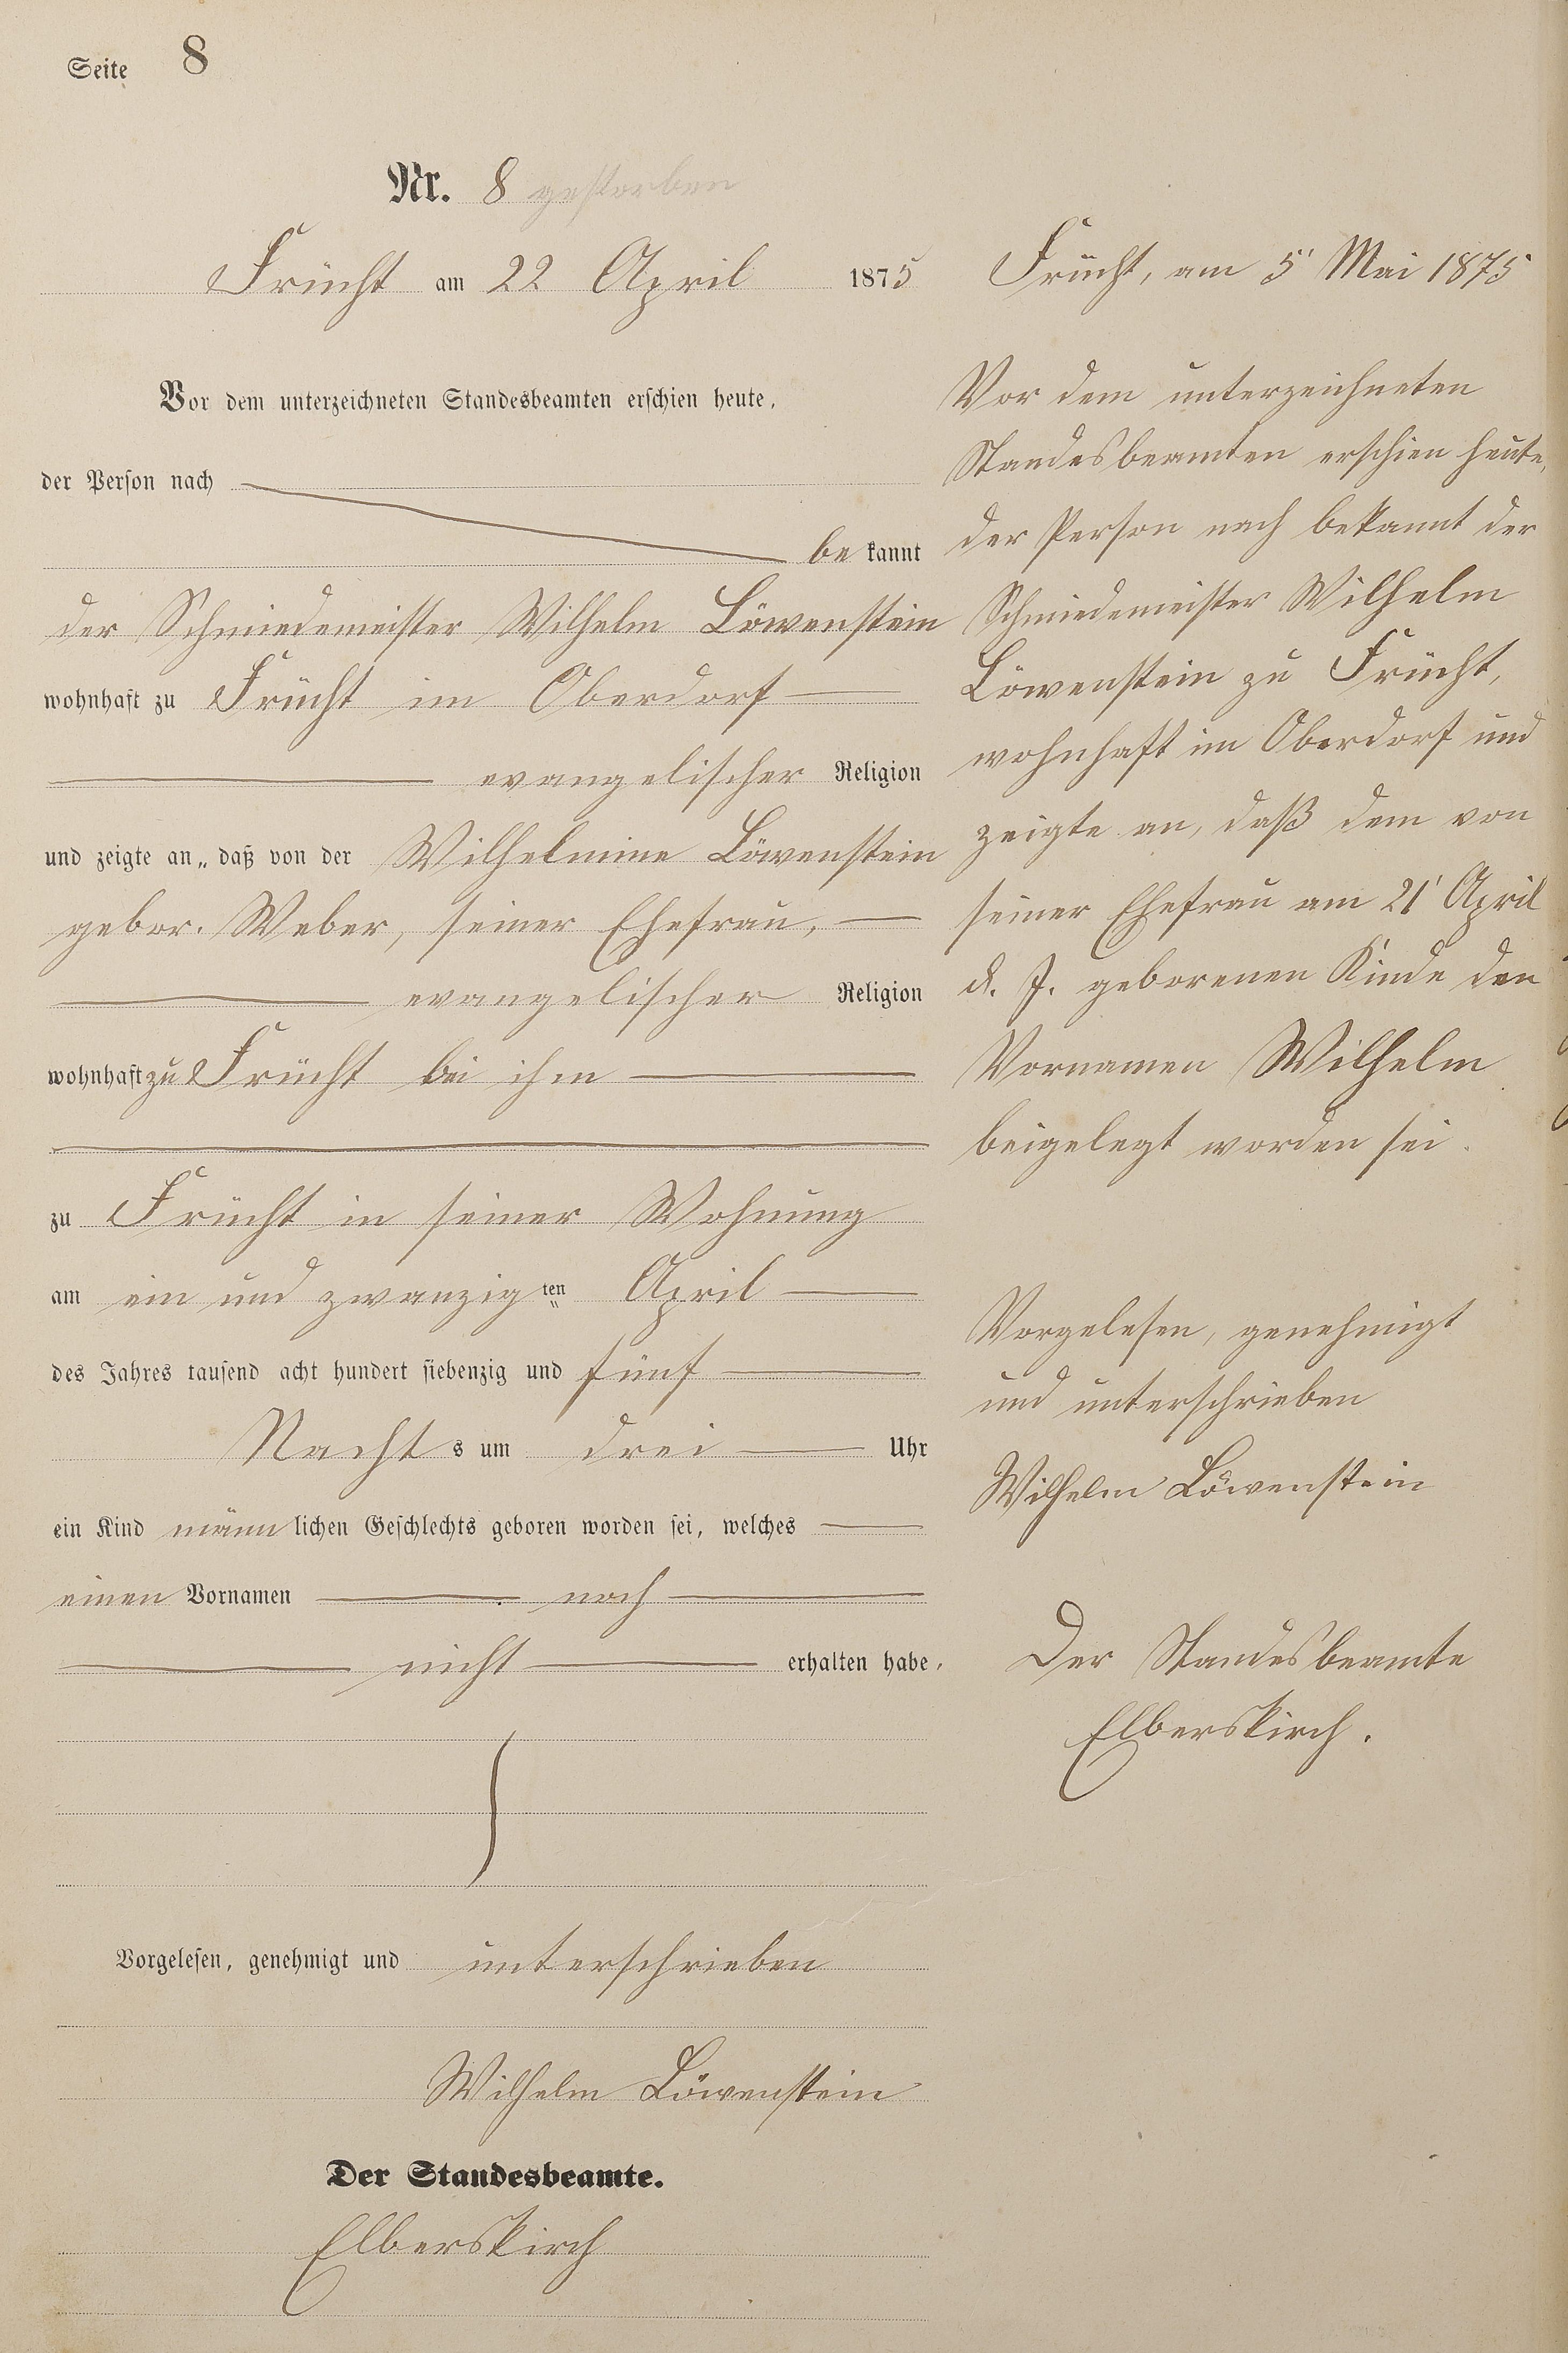 Seite 8
Nr. 8 gestorben
Frücht am 22 April 1875
Vor dem unterzeichneten Standesbeamten erschien heute,
der Person nach
bekannt
der Schmiedemeister Wilhelm Löwenstein
wohnhaft zu Frücht im Oberdorf
evangelischer Religion
und zeigte an, daß von der Wilhelmine Löwenstein
gebor. Weber, seiner Ehefrau,
evangelischer Religion
wohnhaft zu Frücht bei ihm
zu Frücht in seiner Wohnung
am ein und zwanzigten April
des Jahres tausend acht hundert siebenzig und fünf
Nachts um drei Uhr
ein Kind männlichen Geschlechts geboren worden sei, welches
einen Vornamen noch
nicht erhalten habe.
Vorgelesen, genehmigt und unterschrieben
Wilhelm Löwenstein
Der Standesbeamte.
Elberskirch
Frücht, am 5 Mai 1875
Vor dem unterzeichneten
Standesbeamten erschien heute,
der Person nach bekannt der
Schmiedemeister Wilhelm
Löwenstein zu Frücht,
wohnhaft im Oberdorf und
zeigte an, daß dem von
seiner Ehefrau am 21 April
d. J. geborenen Kinde den
Vornamen Wilhelm
beigelegt worden sei.
Vorgelesen, genehmigt
und unterschrieben
Wilhelm Löwenstein
Der Standesbeamte
Elberskirch.